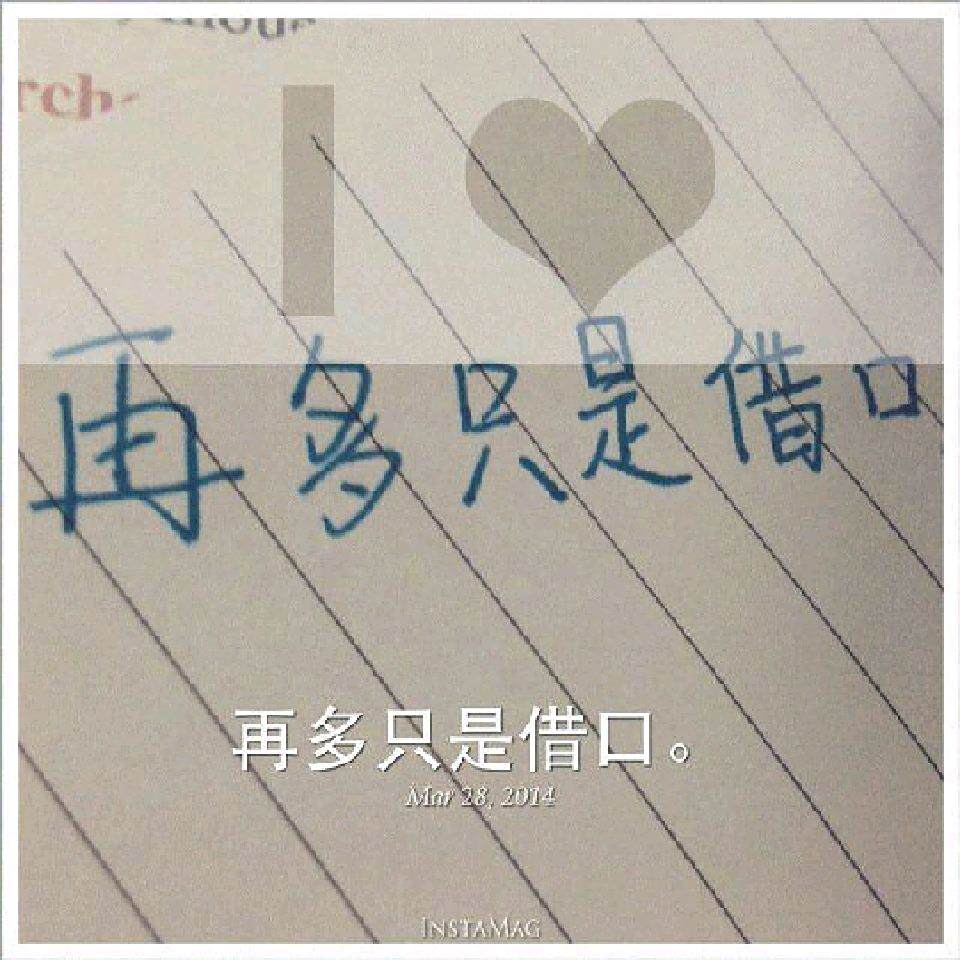 rch-
I
再多只是借口
再多只是借口。
Mar 28, 2014
INSTAMAG